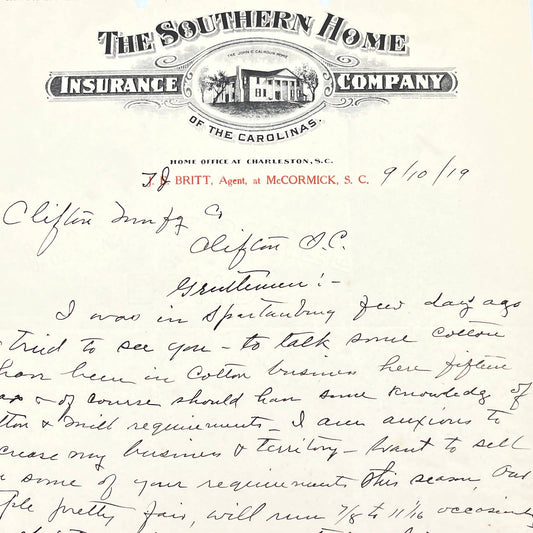 THE SOUTHERN HOME
THE JOHN C. CALHOUN HOME
INSURANCE COMPANY
OF THE CAROLINAS.
HOME OFFICE AT CHARLESTON, S.C.
BRITT, Agent, at McCORMICK, S. C. 9/10/19
Clifton Mnfg Co
Clifton S.C.
Gentlemen:-
I was in Spartanburg few days ago
tried to see you - to talk some cotton
have been in Cotton business here fifteen
& of course should have some knowledge of
& mill requirements - I am anxious to
my business & territory - want to sell
some of your requirements this season, Our
pretty fair, will run 7/8 to 11/16